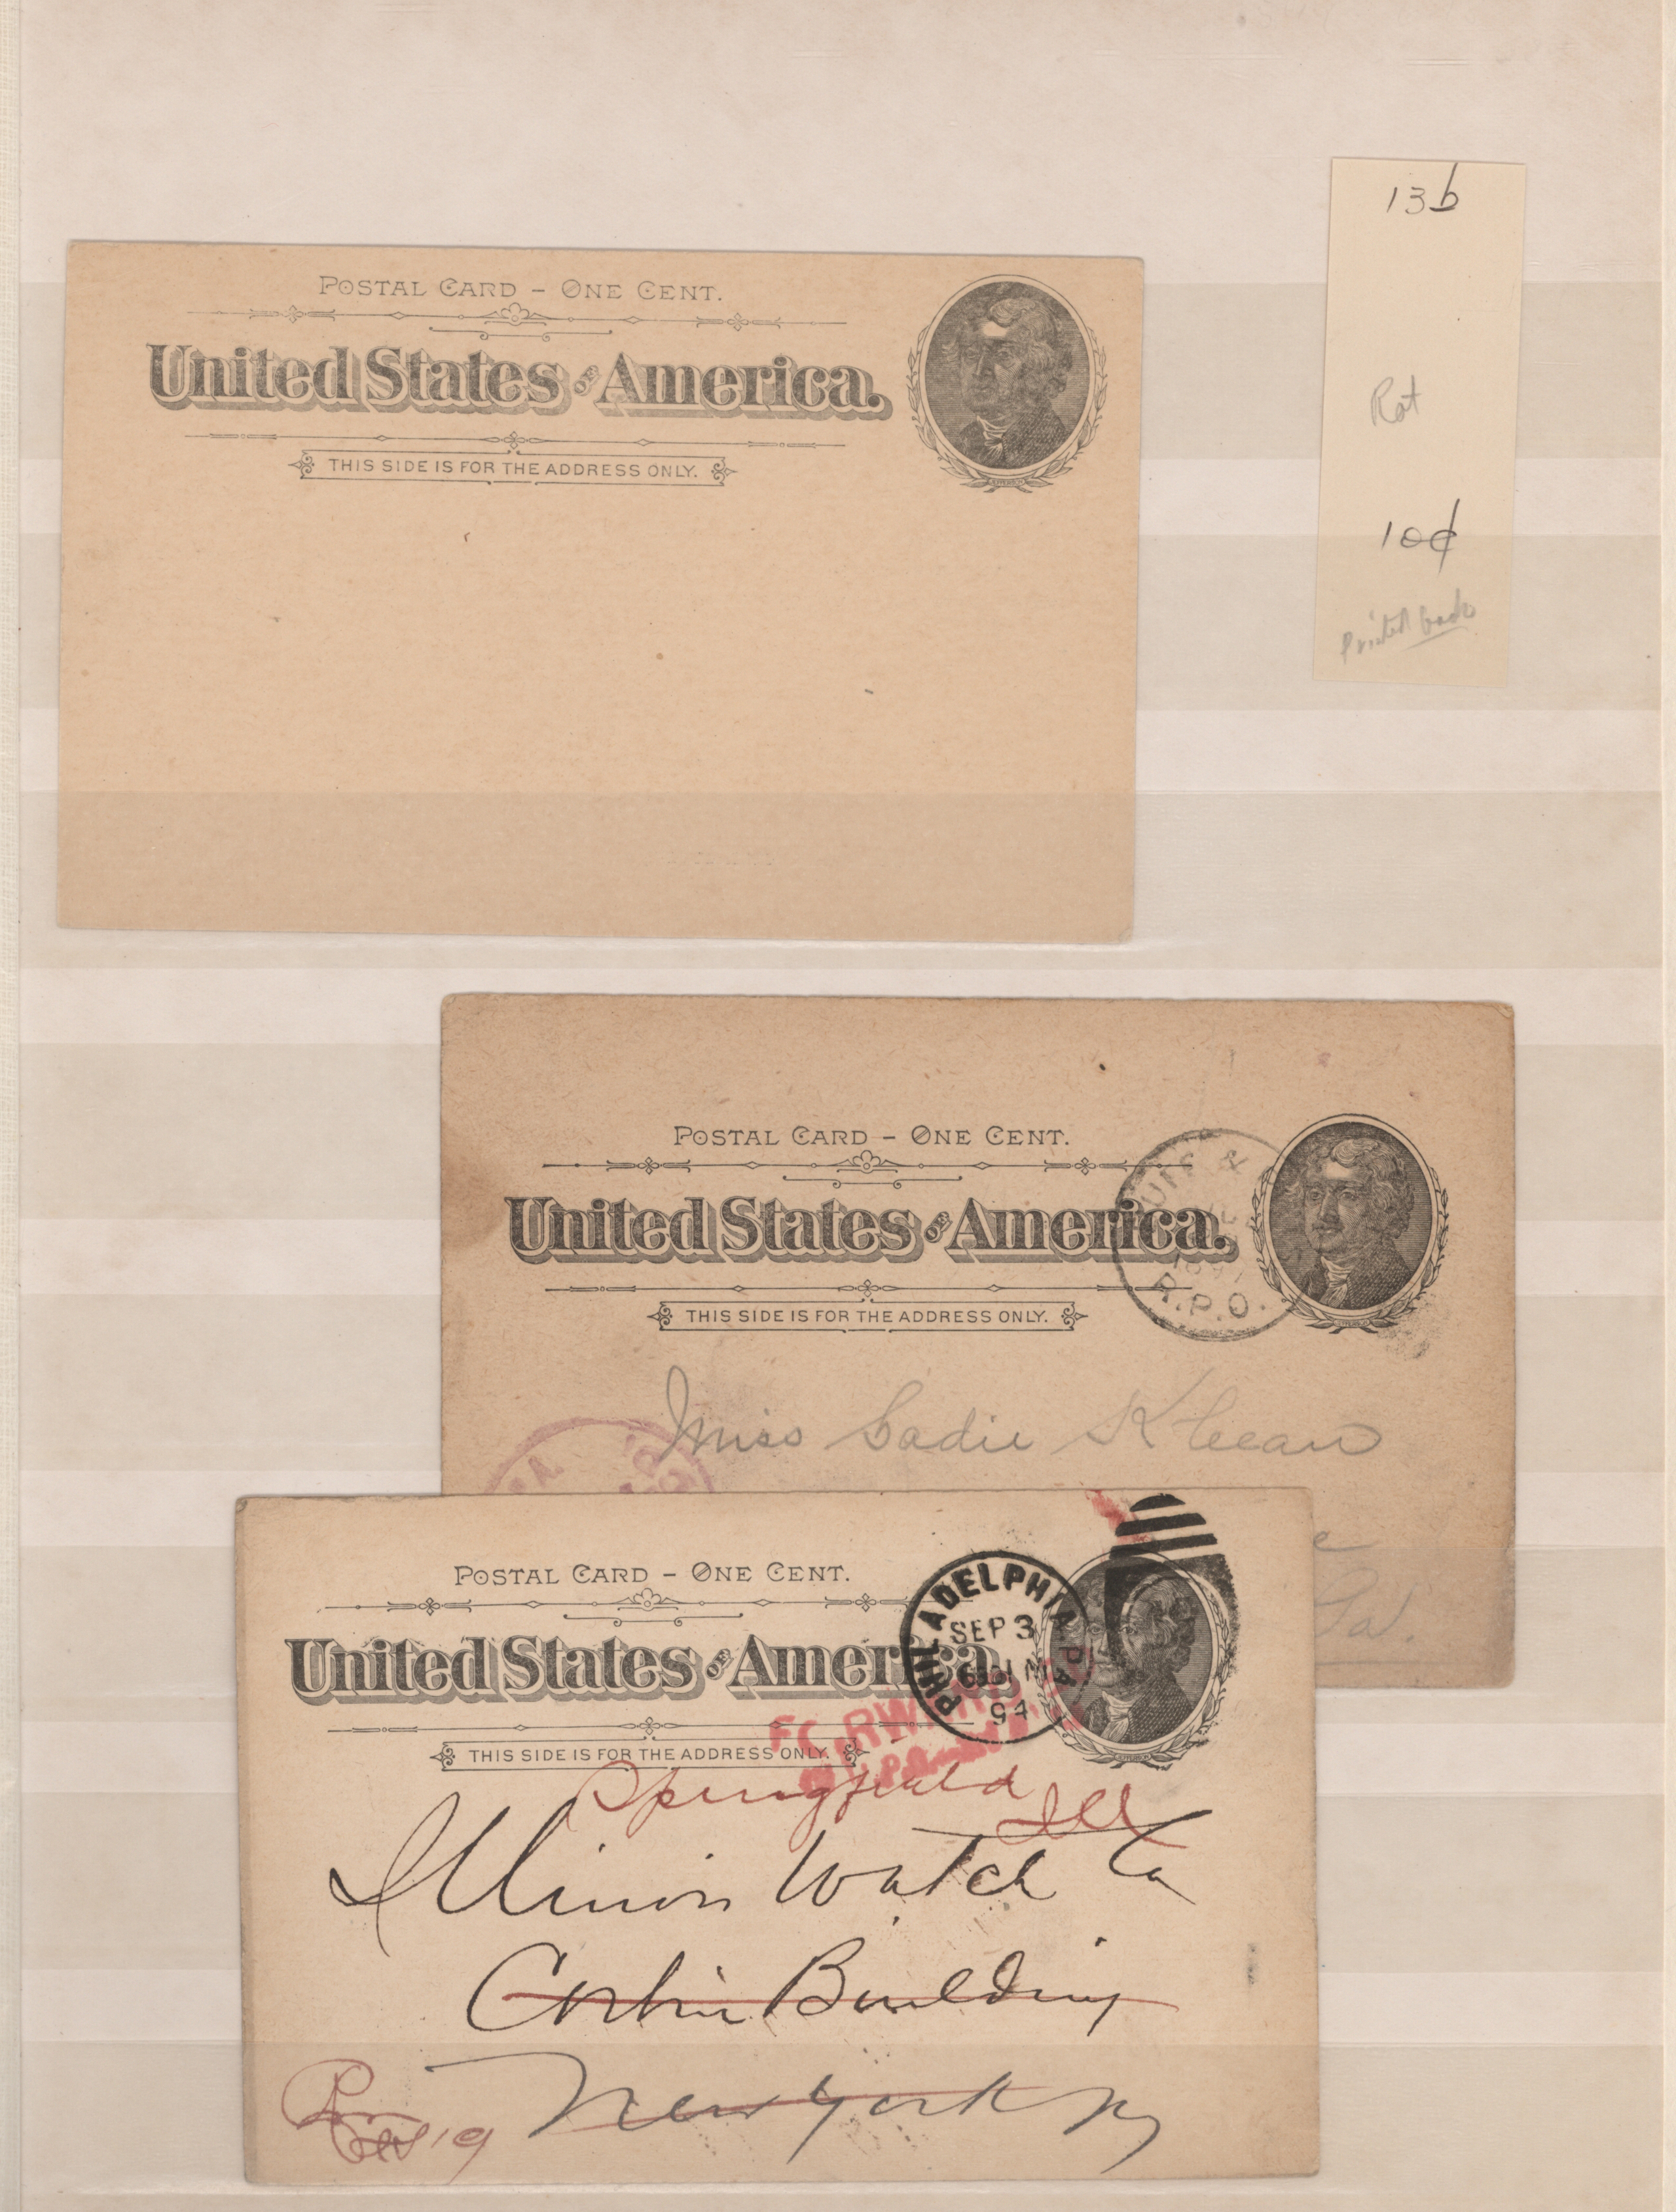 13b
Rat
10¢
Printed back
POSTAL CARD – ONE CENT.
United States OF America.
JEFFERSON
THIS SIDE IS FOR THE ADDRESS ONLY.
POSTAL CARD – ONE CENT.
United States OF America.
JEFFERSON
THIS SIDE IS FOR THE ADDRESS ONLY.
&
R.P.O.
Miss Sadie
Pa.
POSTAL CARD – ONE CENT.
United States OF America.
JEFFERSON
THIS SIDE IS FOR THE ADDRESS ONLY.
PHILADELPHIA PA
SEP 3
94
Springfield
Ill
Illinois Watch Co
Corbin Building
New York NY
19